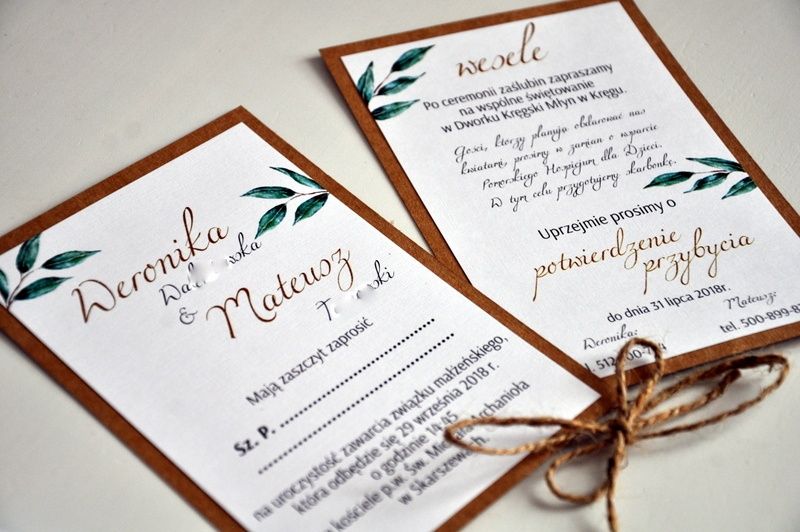 Weronika
&
Mateusz
Mają zaszczyt zaprosić
Sz. P.
na uroczystość zawarcia związku małżeńskiego,
która odbędzie się 29 września 2018 r.
o godzinie 14:45
kościele p.w. Św. Archanioła
w Skarszewach.
wesele
Po ceremonii zaślubin zapraszamy
na wspólne świętowanie
w Dworku Kręgski Młyn w Kręgu.
Gości, którzy planują obdarować nas
kwiatami, prosimy w zamian o wsparcie
Pomorskiego Hospicjum dla Dzieci.
W tym celu przygotujemy skarbonkę.
Uprzejmie prosimy o
potwierdzenie
przybycia
do dnia 31 lipca 2018r.
Weronika:
Mateusz:
tel. 500-899-8